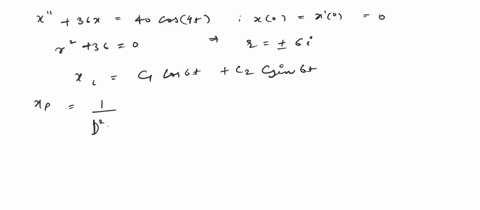 x'' + 36x = 40 cos(4t) ; x(0) = x'(0) = 0
r² + 36 = 0 ⇒ r = ± 6i
x_c = C₁ cos 6t + C₂ sin 6t
x_p = 1/D²